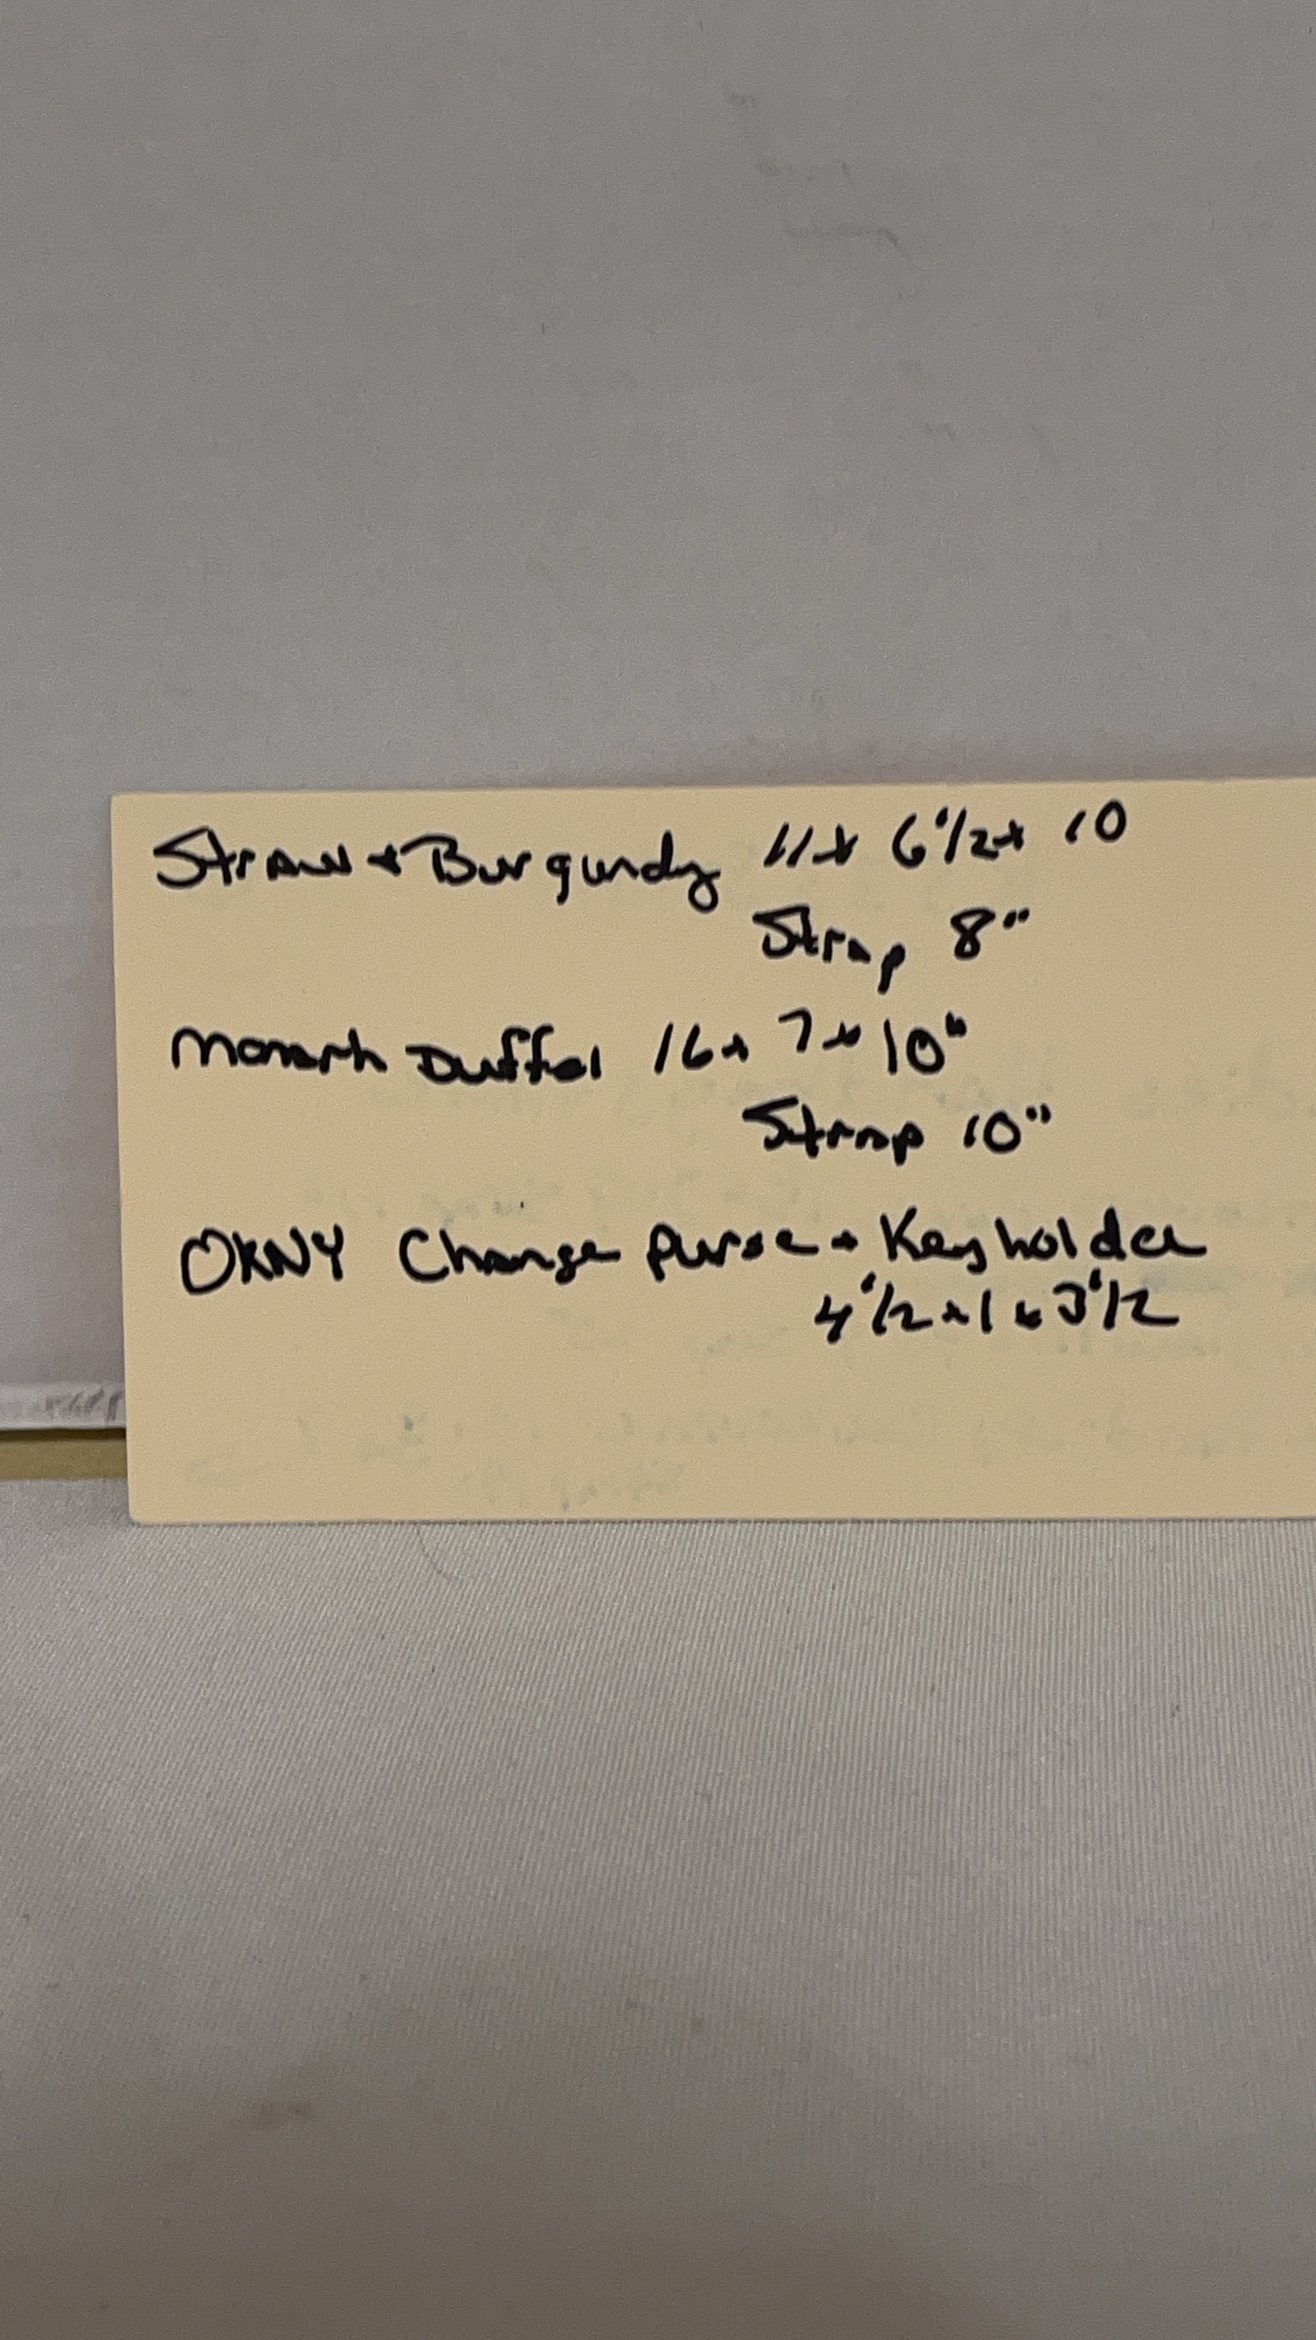 Straw + Burgundy 11 x 6 1/2 x 10
Strap 8"
Monarh Duffel 16 x 7 x 10"
Strap 10"
DKNY Change purse + Keyholder
4 1/2 x 1 x 3 1/2